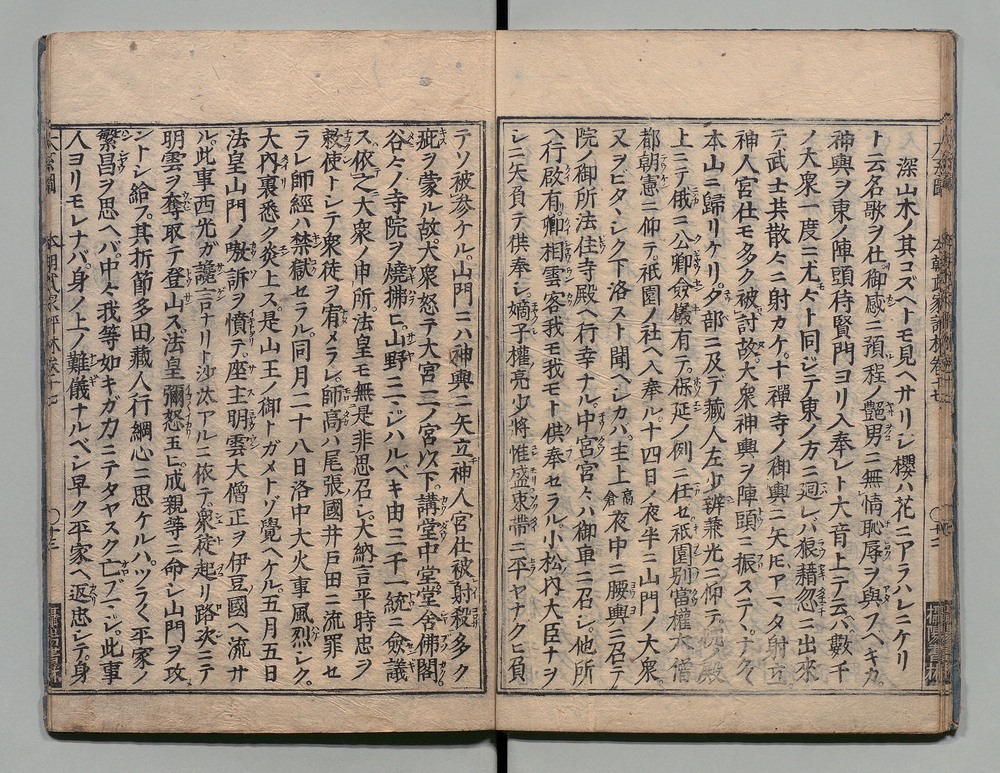 深山木ノ其コズヘトモ見ヘサリシ櫻ハ花ニアラハレニケリ
ト云名歌ヲ仕御感ニ預程ノ艶男ニ無情恥辱ヲ與フヘキカ。
神輿ヲ東ノ陣頭待賢門ヨリ入奉レト大音上テ云バ數千
ノ大衆一度ニ尤々ト同ジテ東ノ方ニ廻レバ狼藉忽ニ出來
テ武士共散々ニ射カケ。十禪寺ノ御輿ニ矢ヒアマタ射立
神人宮仕モ多ク被討故。大衆神輿ヲ陣頭ニ振ステヽナク々
本山ニ歸リケリ。夕部ニ及デ藏人左少辨兼光ニ仰テ。殿
上ニテ俄ニ公卿僉儀有テ。保延ノ例ニ任セ祇園別當權大僧
都朝憲ニ仰テ。祇園ノ社ヘ入奉ル。十四日ノ夜半ニ山門ノ大衆。
又ヲビタヽシク下洛スト聞ヘシカバ。主上高倉夜中ニ腰輿ニ召テ
院ノ御所法住寺殿ヘ行幸ナル中宮宮々ハ御車ニ召シ。他所
ヘ行啓有。卿相雲客我モ我モト供奉セラル。小松内大臣ナヲ
シニ矢負テ供奉シ。嫡子權亮少將惟盛束帶ニ平ヤナクヒ負
テソ被參ケル。山門ニハ神輿ニ矢立神人宮仕被射殺多ク
疵ヲ蒙ル故大衆怒テ大宮二ノ宮以下。講堂中堂堂舍佛閣。
谷々ノ寺院ヲ燒拂ヒ。山野ニマジハルベキ由三千一統ニ僉議
ス依之大衆ノ申所。法皇モ無是非思召シ。大納言平時忠ヲ
敕使トシテ衆徒ヲ宥メラレ。師高ハ尾張國井戸田ニ流罪セ
ラレ師經ハ禁獄セラル。同月二十八日洛中大火事風烈シク。
大内裏悉ク炎上ス。是山王ノ御トガメトゾ覺ヘケル。五月五日
法皇山門ノ嗷訴ヲ憤テ。座主明雲大僧正ヲ伊豆國ヘ流サ
ル。此事西光ガ讒言ナリト沙汰アルニ依テ衆徒起リ路次ニテ
明雲ヲ奪取テ登山ス。法皇彌怒玉ヒ成親等ニ命シ山門ヲ攻
ントシ給フ。其折節多田藏人行綱心ニ思ケルハ。ツラ〱平家ノ
繁昌ヲ思ヘバ。中々我等如キガカニテタヤスク亡ブマシ。此事
人ヨリモレナバ。身ノ上ノ難儀ナルベシ早ク平家ヘ返忠シテ。身